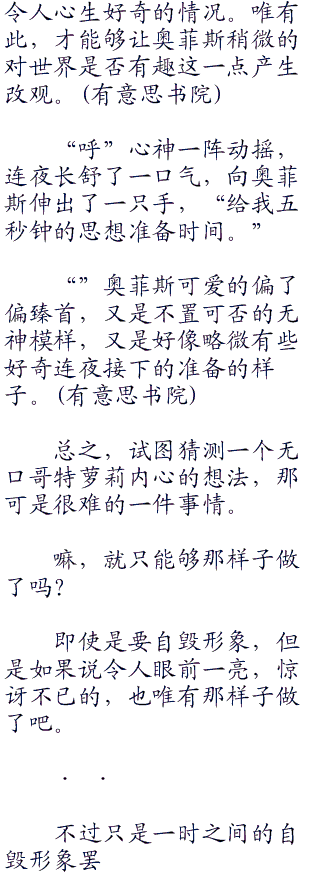 令人心生好奇的情况。唯有
此，才能够让奥菲斯稍微的
对世界是否有趣这一点产生
改观。(有意思书院)
“呼”心神一阵动摇，
连夜长舒了一口气，向奥菲
斯伸出了一只手，“给我五
秒钟的思想准备时间。”
“”奥菲斯可爱的偏了
偏臻首，又是不置可否的无
神模样，又是好像略微有些
好奇连夜接下的准备的样
子。(有意思书院)
总之，试图猜测一个无
口哥特萝莉内心的想法，那
可是很难的一件事情。
嘛，就只能够那样子做
了吗？
即使是要自毁形象，但
是如果说令人眼前一亮，惊
讶不已的，也唯有那样子做
了吧。
· ·
不过只是一时之间的自
毁形象罢